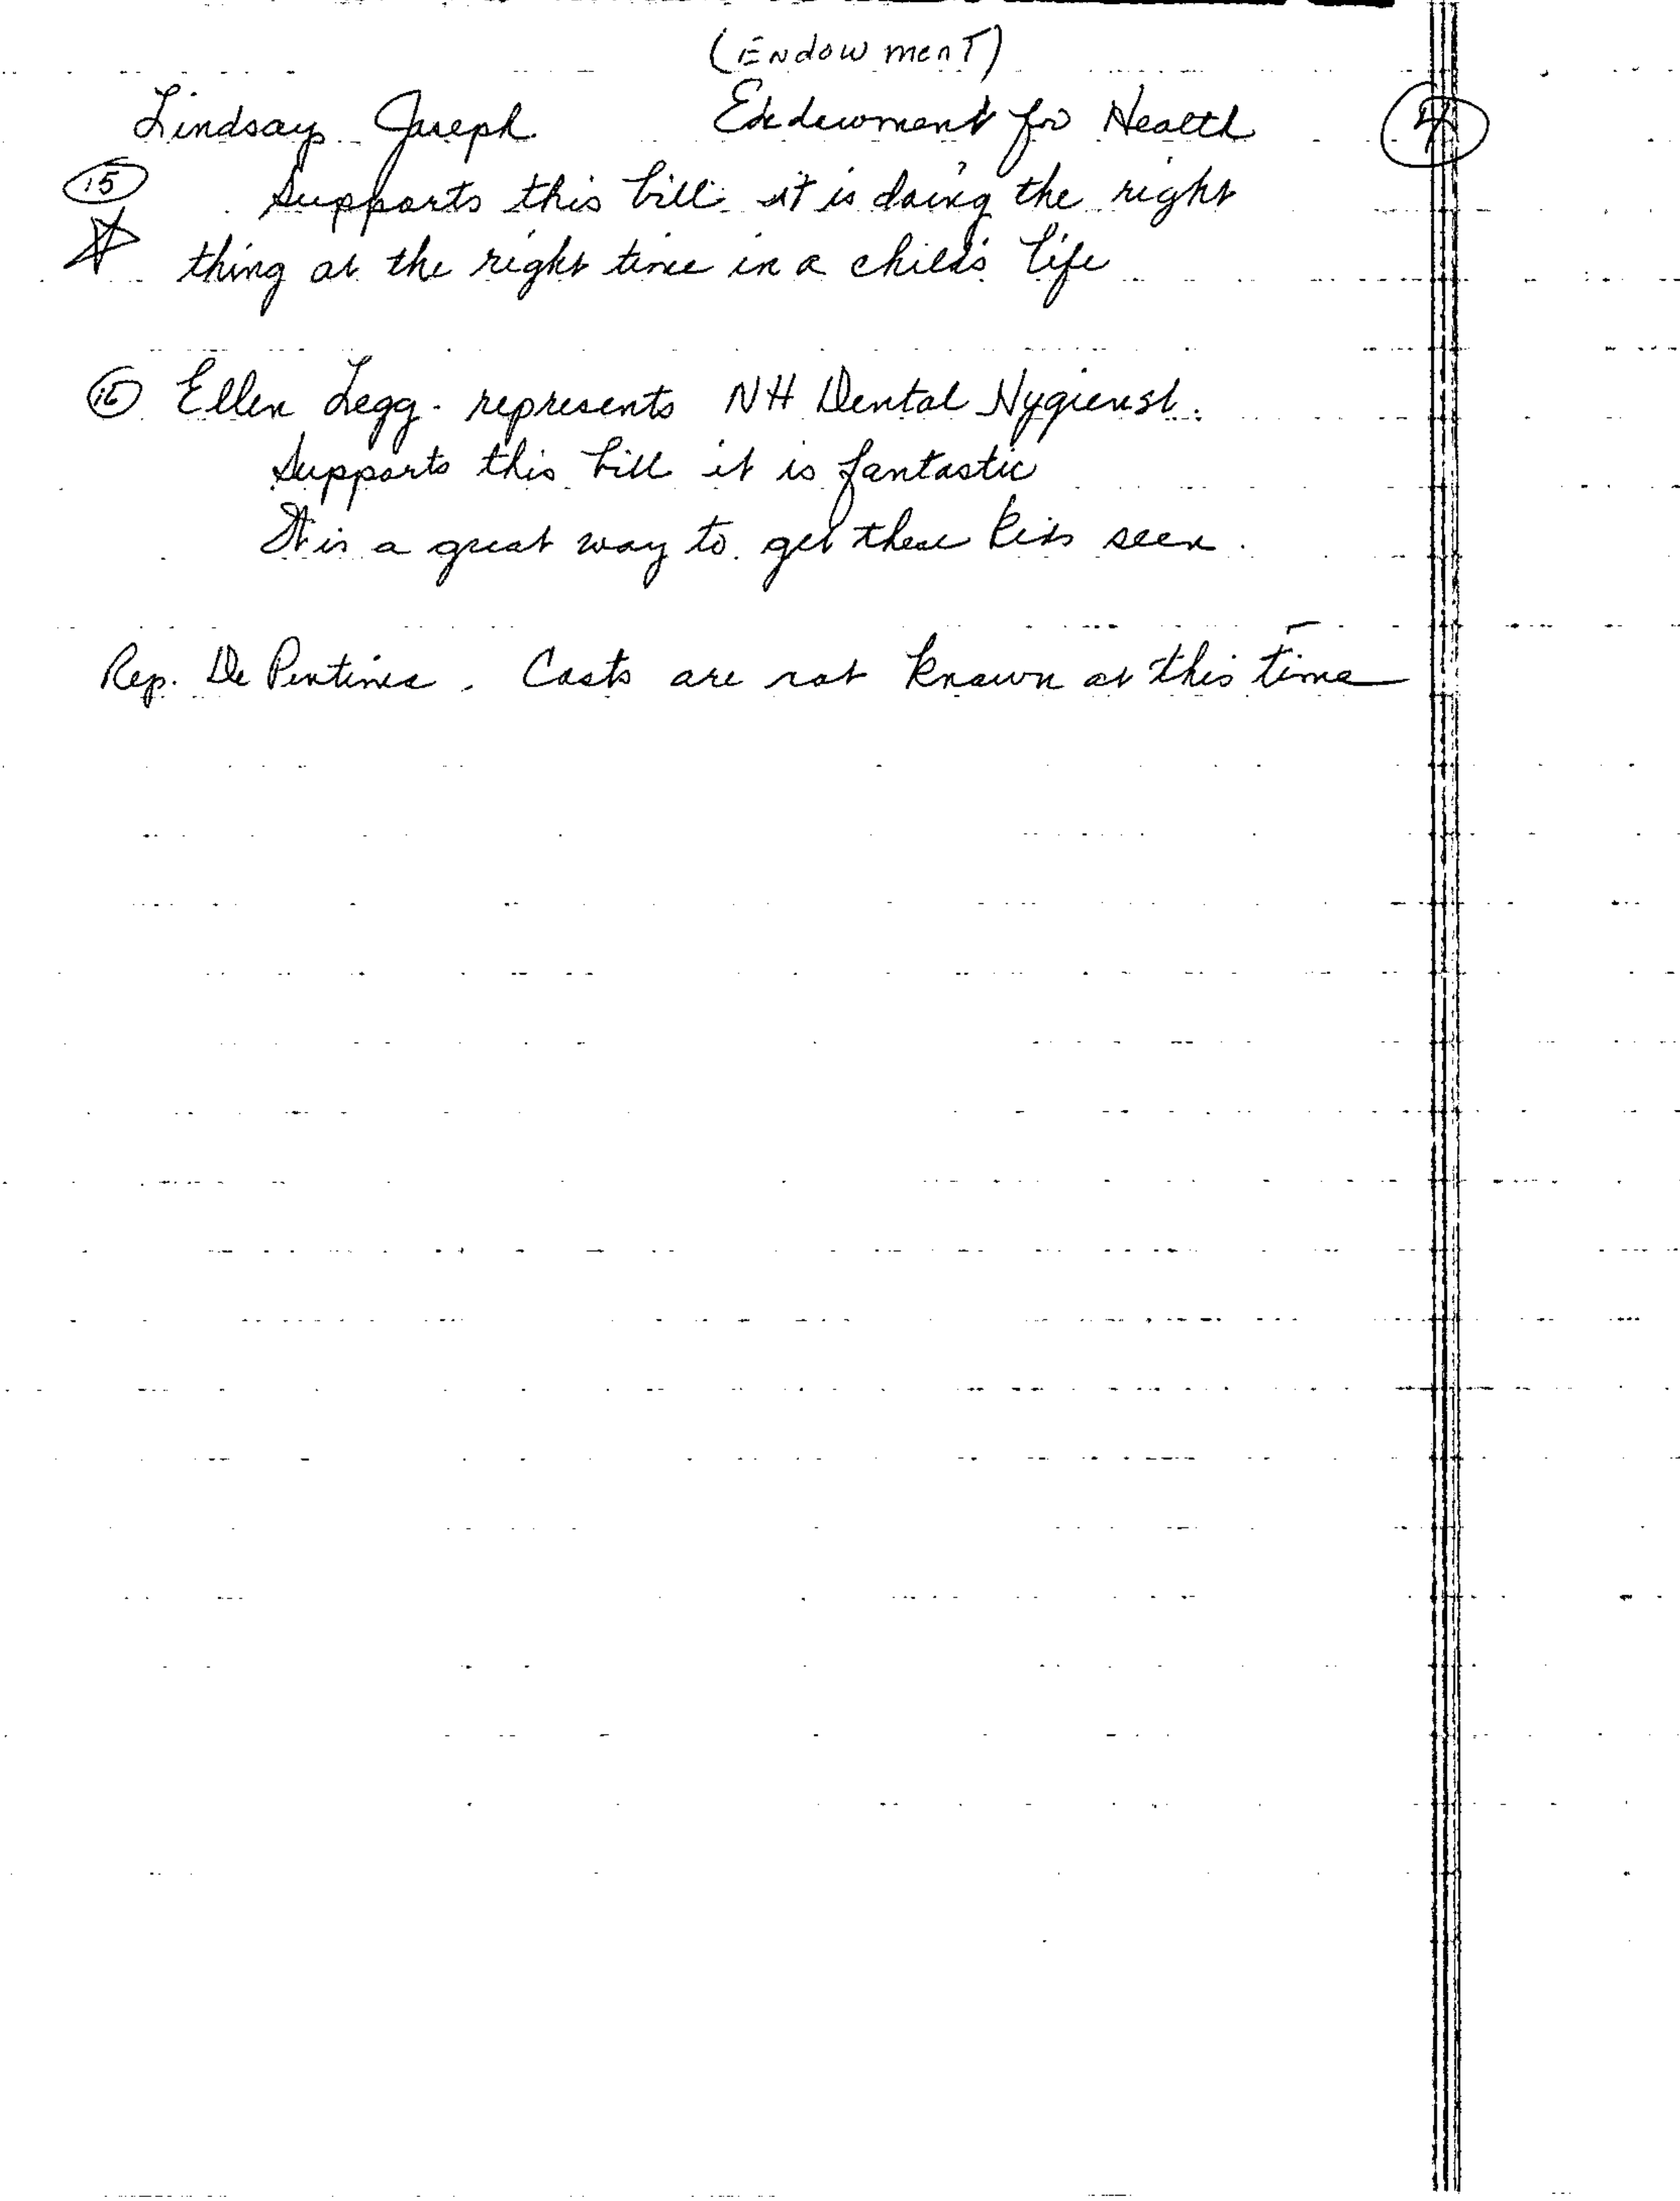 (Endowment)
Lindsay Joseph Endowment for Health 4
15 Supports this bill it is doing the right
thing at the right time in a child's life
16 Ellen Legg. represents NH Dental Hygienist.
Supports this bill it is fantastic
It is a great way to get these kids seen.
Rep. Costs are not known at this time